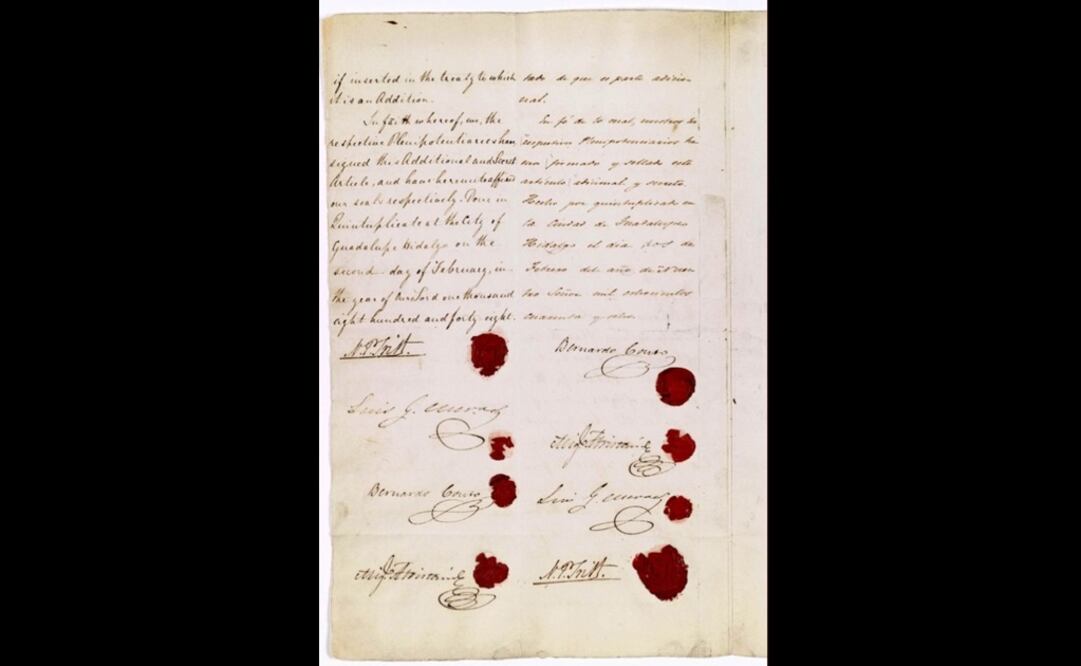 if inserted in the treaty to which
it is an Addition.
In faith whereof, we, the
respective Plenipotentiaries have
signed this Additional and Secret
Article, and have hereunto affixed
our seals respectively. Done in
Quintuplicate at the City of
Guadalupe Hidalgo on the
second day of February, in
the year of Our Lord one thousand
eight hundred and forty eight.
N. P. Trist.
Luis G. Cuevas
Bernardo Couto
Migl. Atristain
tado de que es parte adicio-
nal.
En fé de lo cual, nosotros los
respectivos Plenipotenciarios he-
mos firmado y sellado este
artículo adicional y secreto.
Hecho por quintuplicado en
la Ciudad de Guadalupe
Hidalgo el dia dos de
Febrero del año de Nues-
tro Señor mil ochocientos
cuarenta y ocho.
Bernardo Couto
Migl. Atristain
Luis G. Cuevas
N. P. Trist.